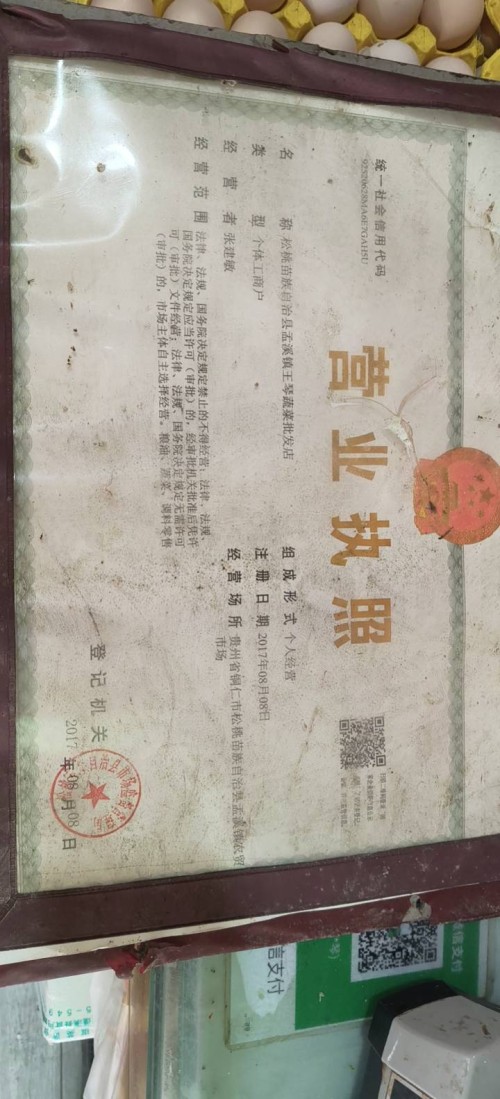 统一社会信用代码
营业执照
名称 松桃苗族自治县孟溪镇王琴蔬菜批发店
类型 个体工商户
经营者 张建敏
经营范围 法律、法规、国务院决定规定禁止的不得经营；法律、法规、
国务院决定规定应当许可（审批）的，经审批机关批准后凭许
可（审批）文件经营；法律、法规、国务院决定规定无需许可
（审批）的，市场主体自主选择经营。粮油、蔬菜、调料零售
组成形式 个人经营
注册日期 2017年08月08日
经营场所 贵州省铜仁市松桃苗族自治县孟溪镇农贸
市场
登记机关
2017年08月08日
信支付
微信支付